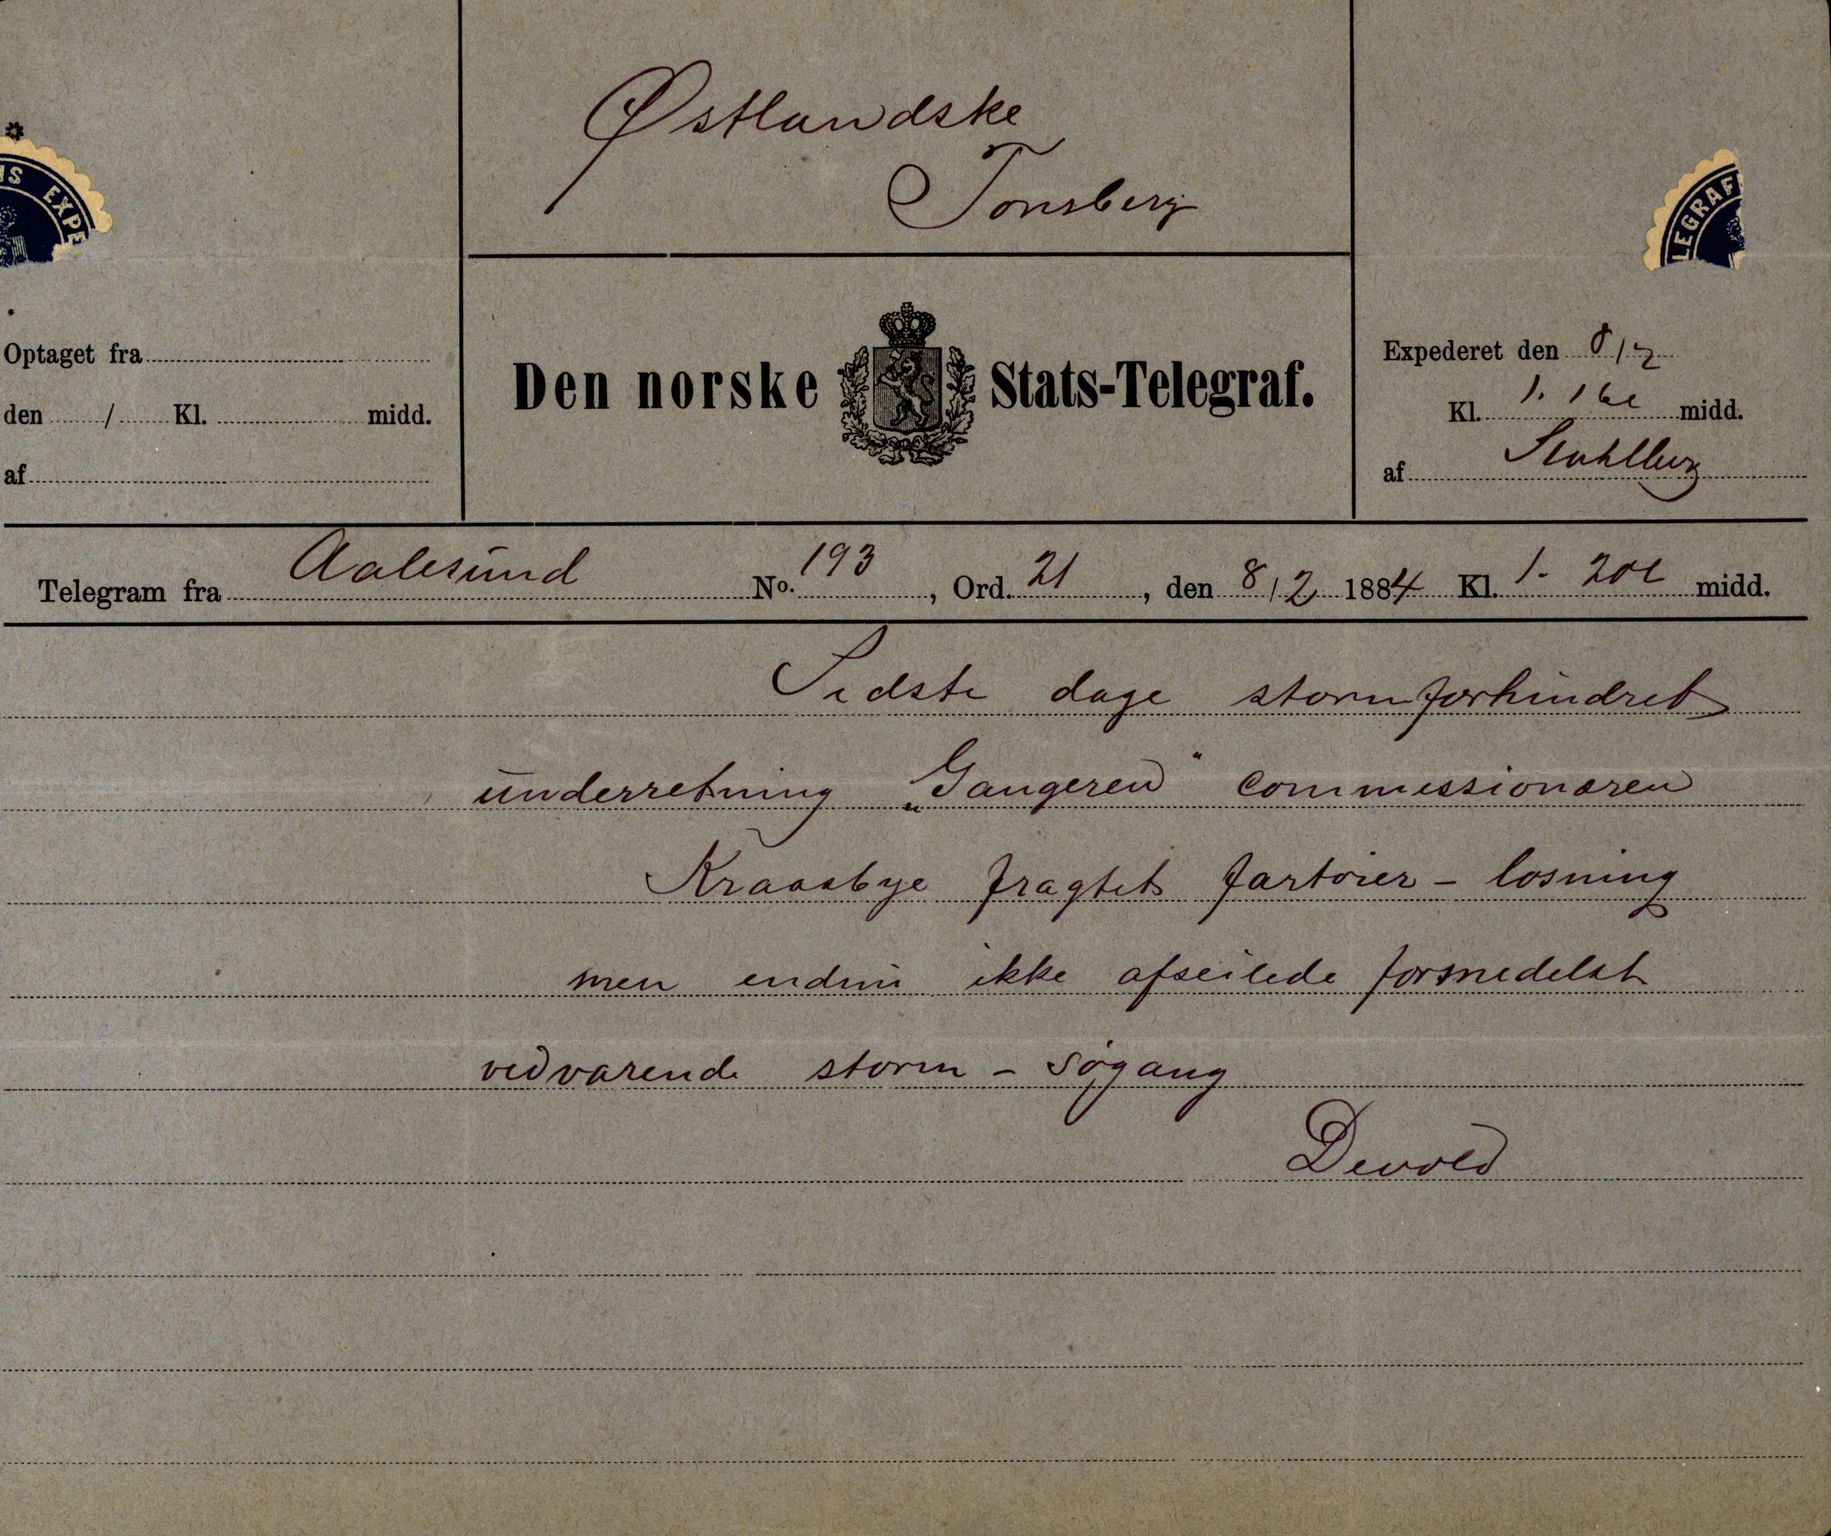 Østlandske
Tonsberg
NS EXPE
LEGRAF
Optaget fra
den / Kl. midd.
af
Den norske Stats-Telegraf.
Expederet den 8/2
Kl. 1.16 e midd.
af
Telegram fra Aalesund No. 193, Ord. 21, den 8/2 1884 Kl. 1.20 e midd.
Sidste dage stormforhindret
underretning „Gangeren“ commissionæren
Kraasbye fragtet fartøier – losning
men endnu ikke afseilede formedelst
vedvarende storm – søgang
Devold